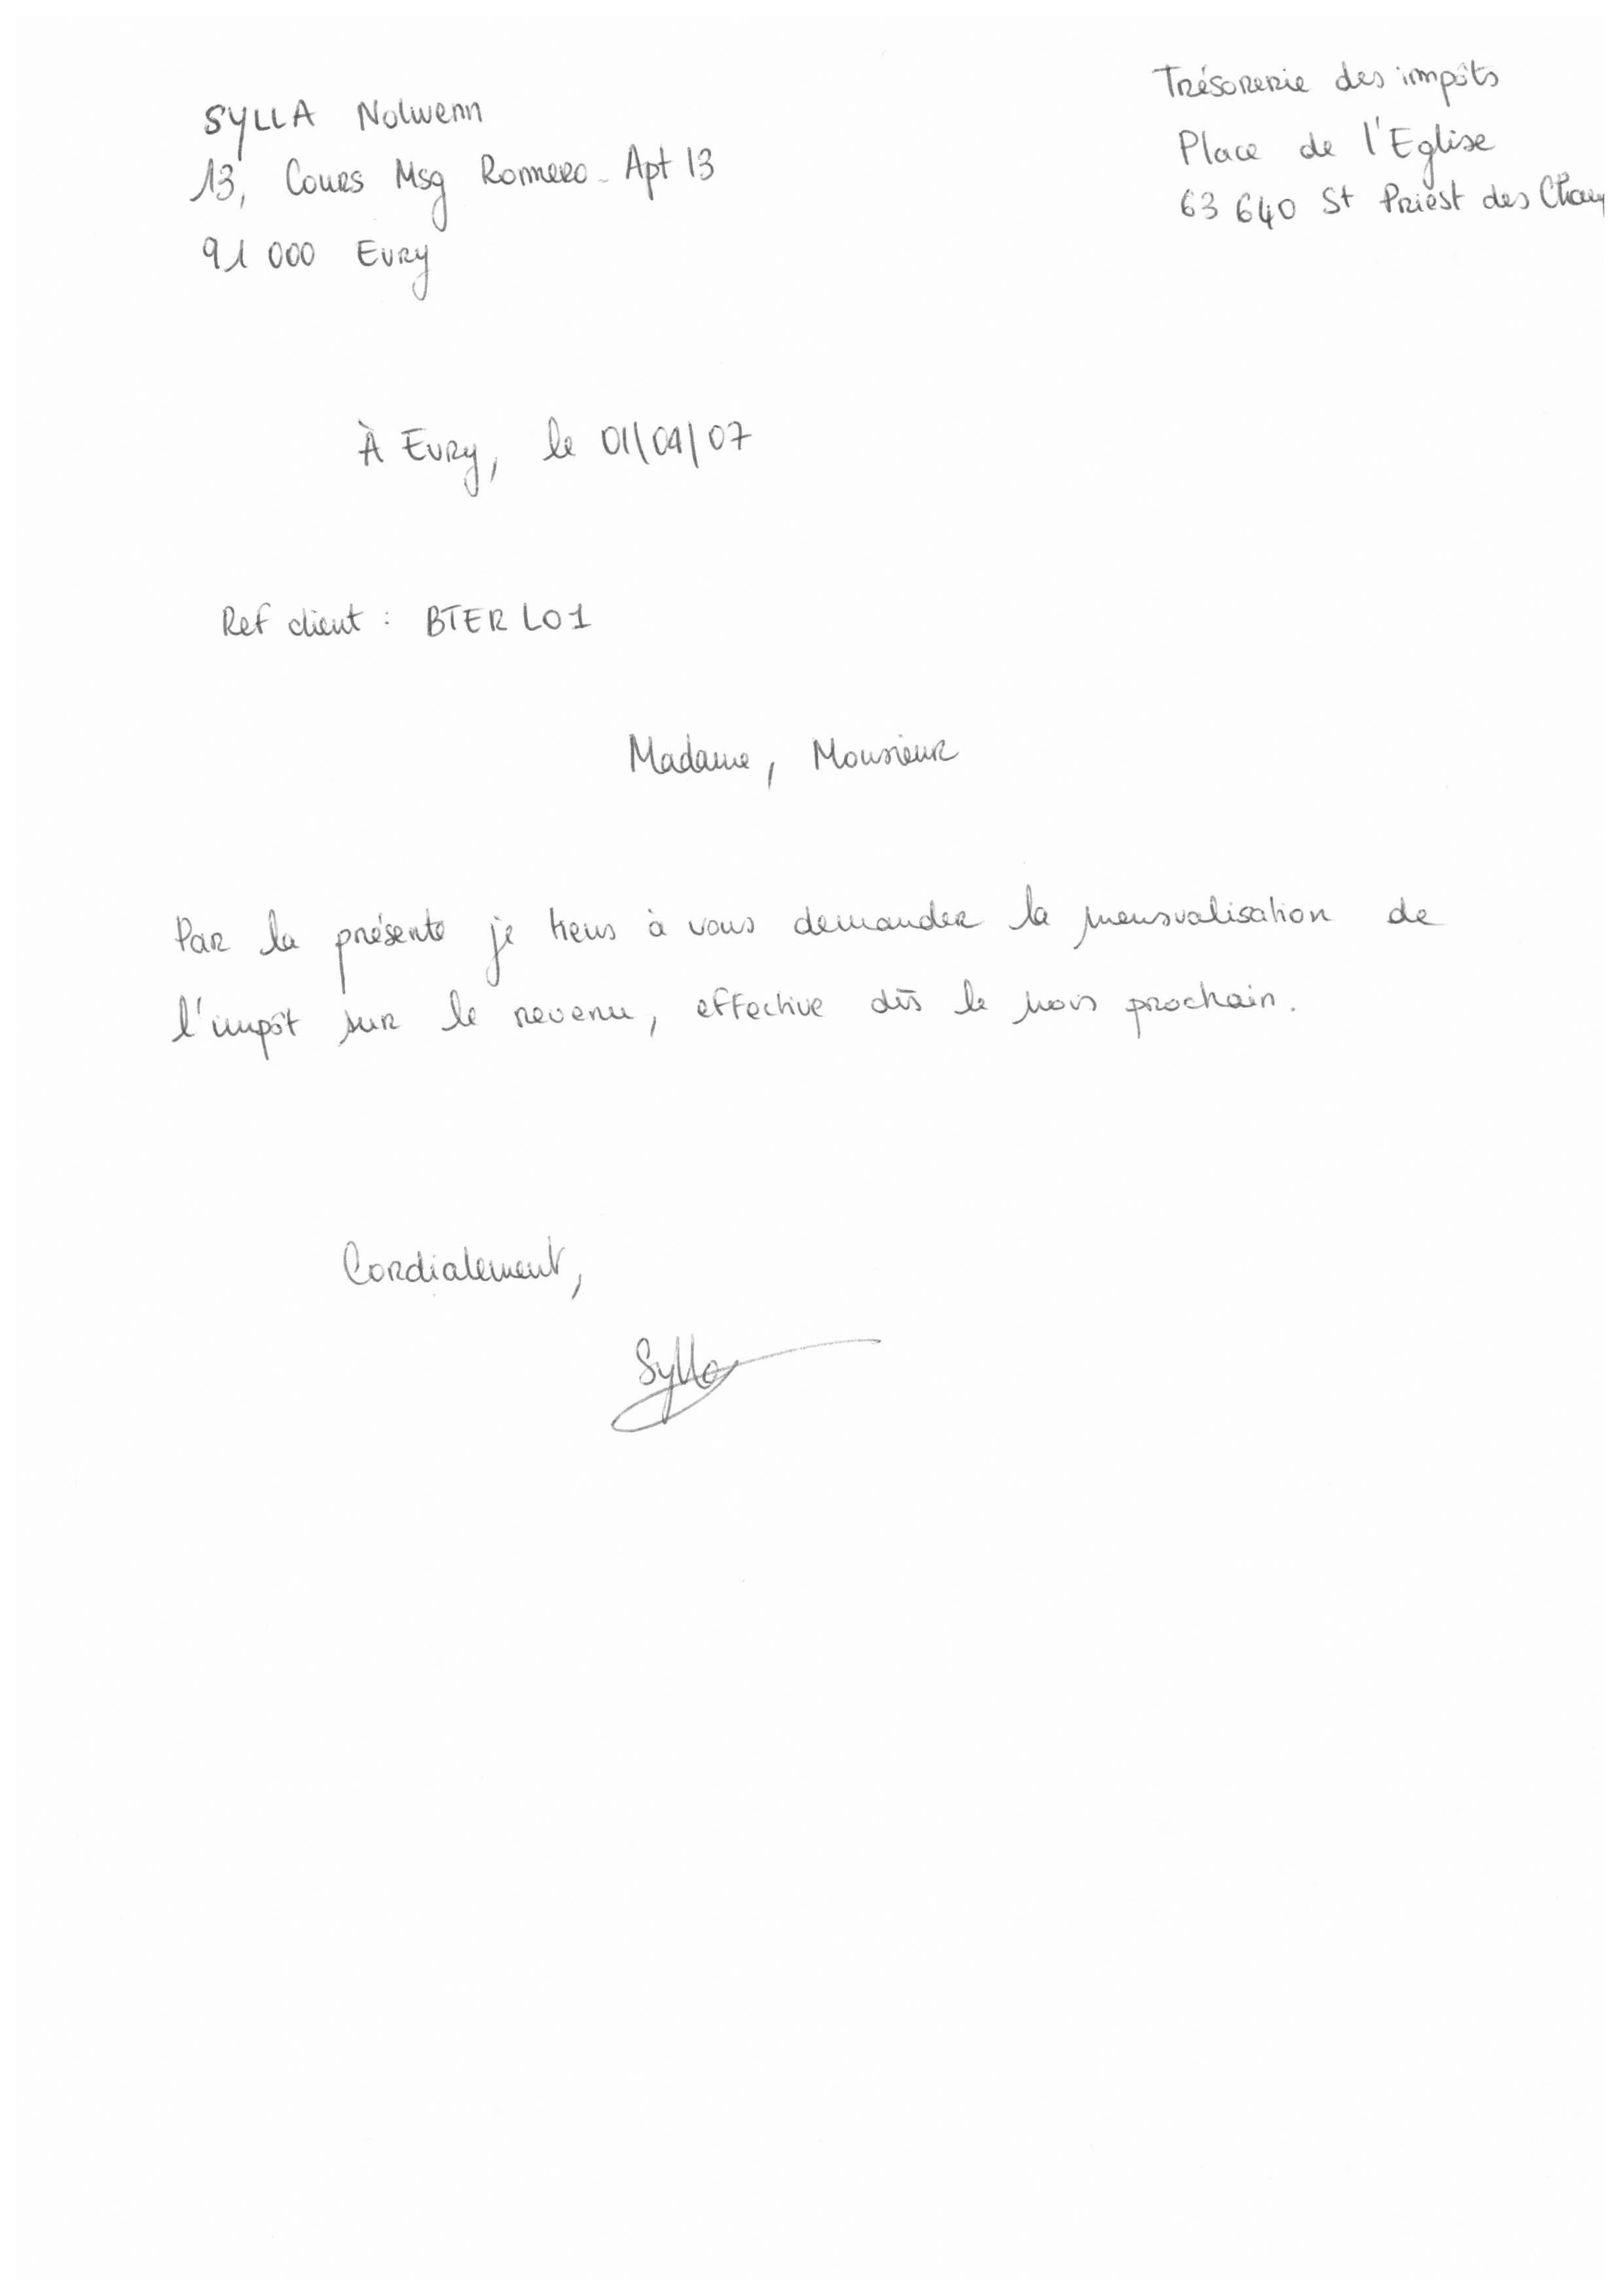 SYLLA Nolwenn
13, Cours Msg Romero - Apt 13
91 000 Evry
Trésorerie des impôts
Place de l'Eglise
63 640 St Priest des
À Evry, le 01/04/07
Ref client : BTERL01
Madame, Monsieur
Par la présente je tiens à vous demander la mensualisation de
l'impôt sur le revenu, effective dès le mois prochain.
Cordialement,
Sylla